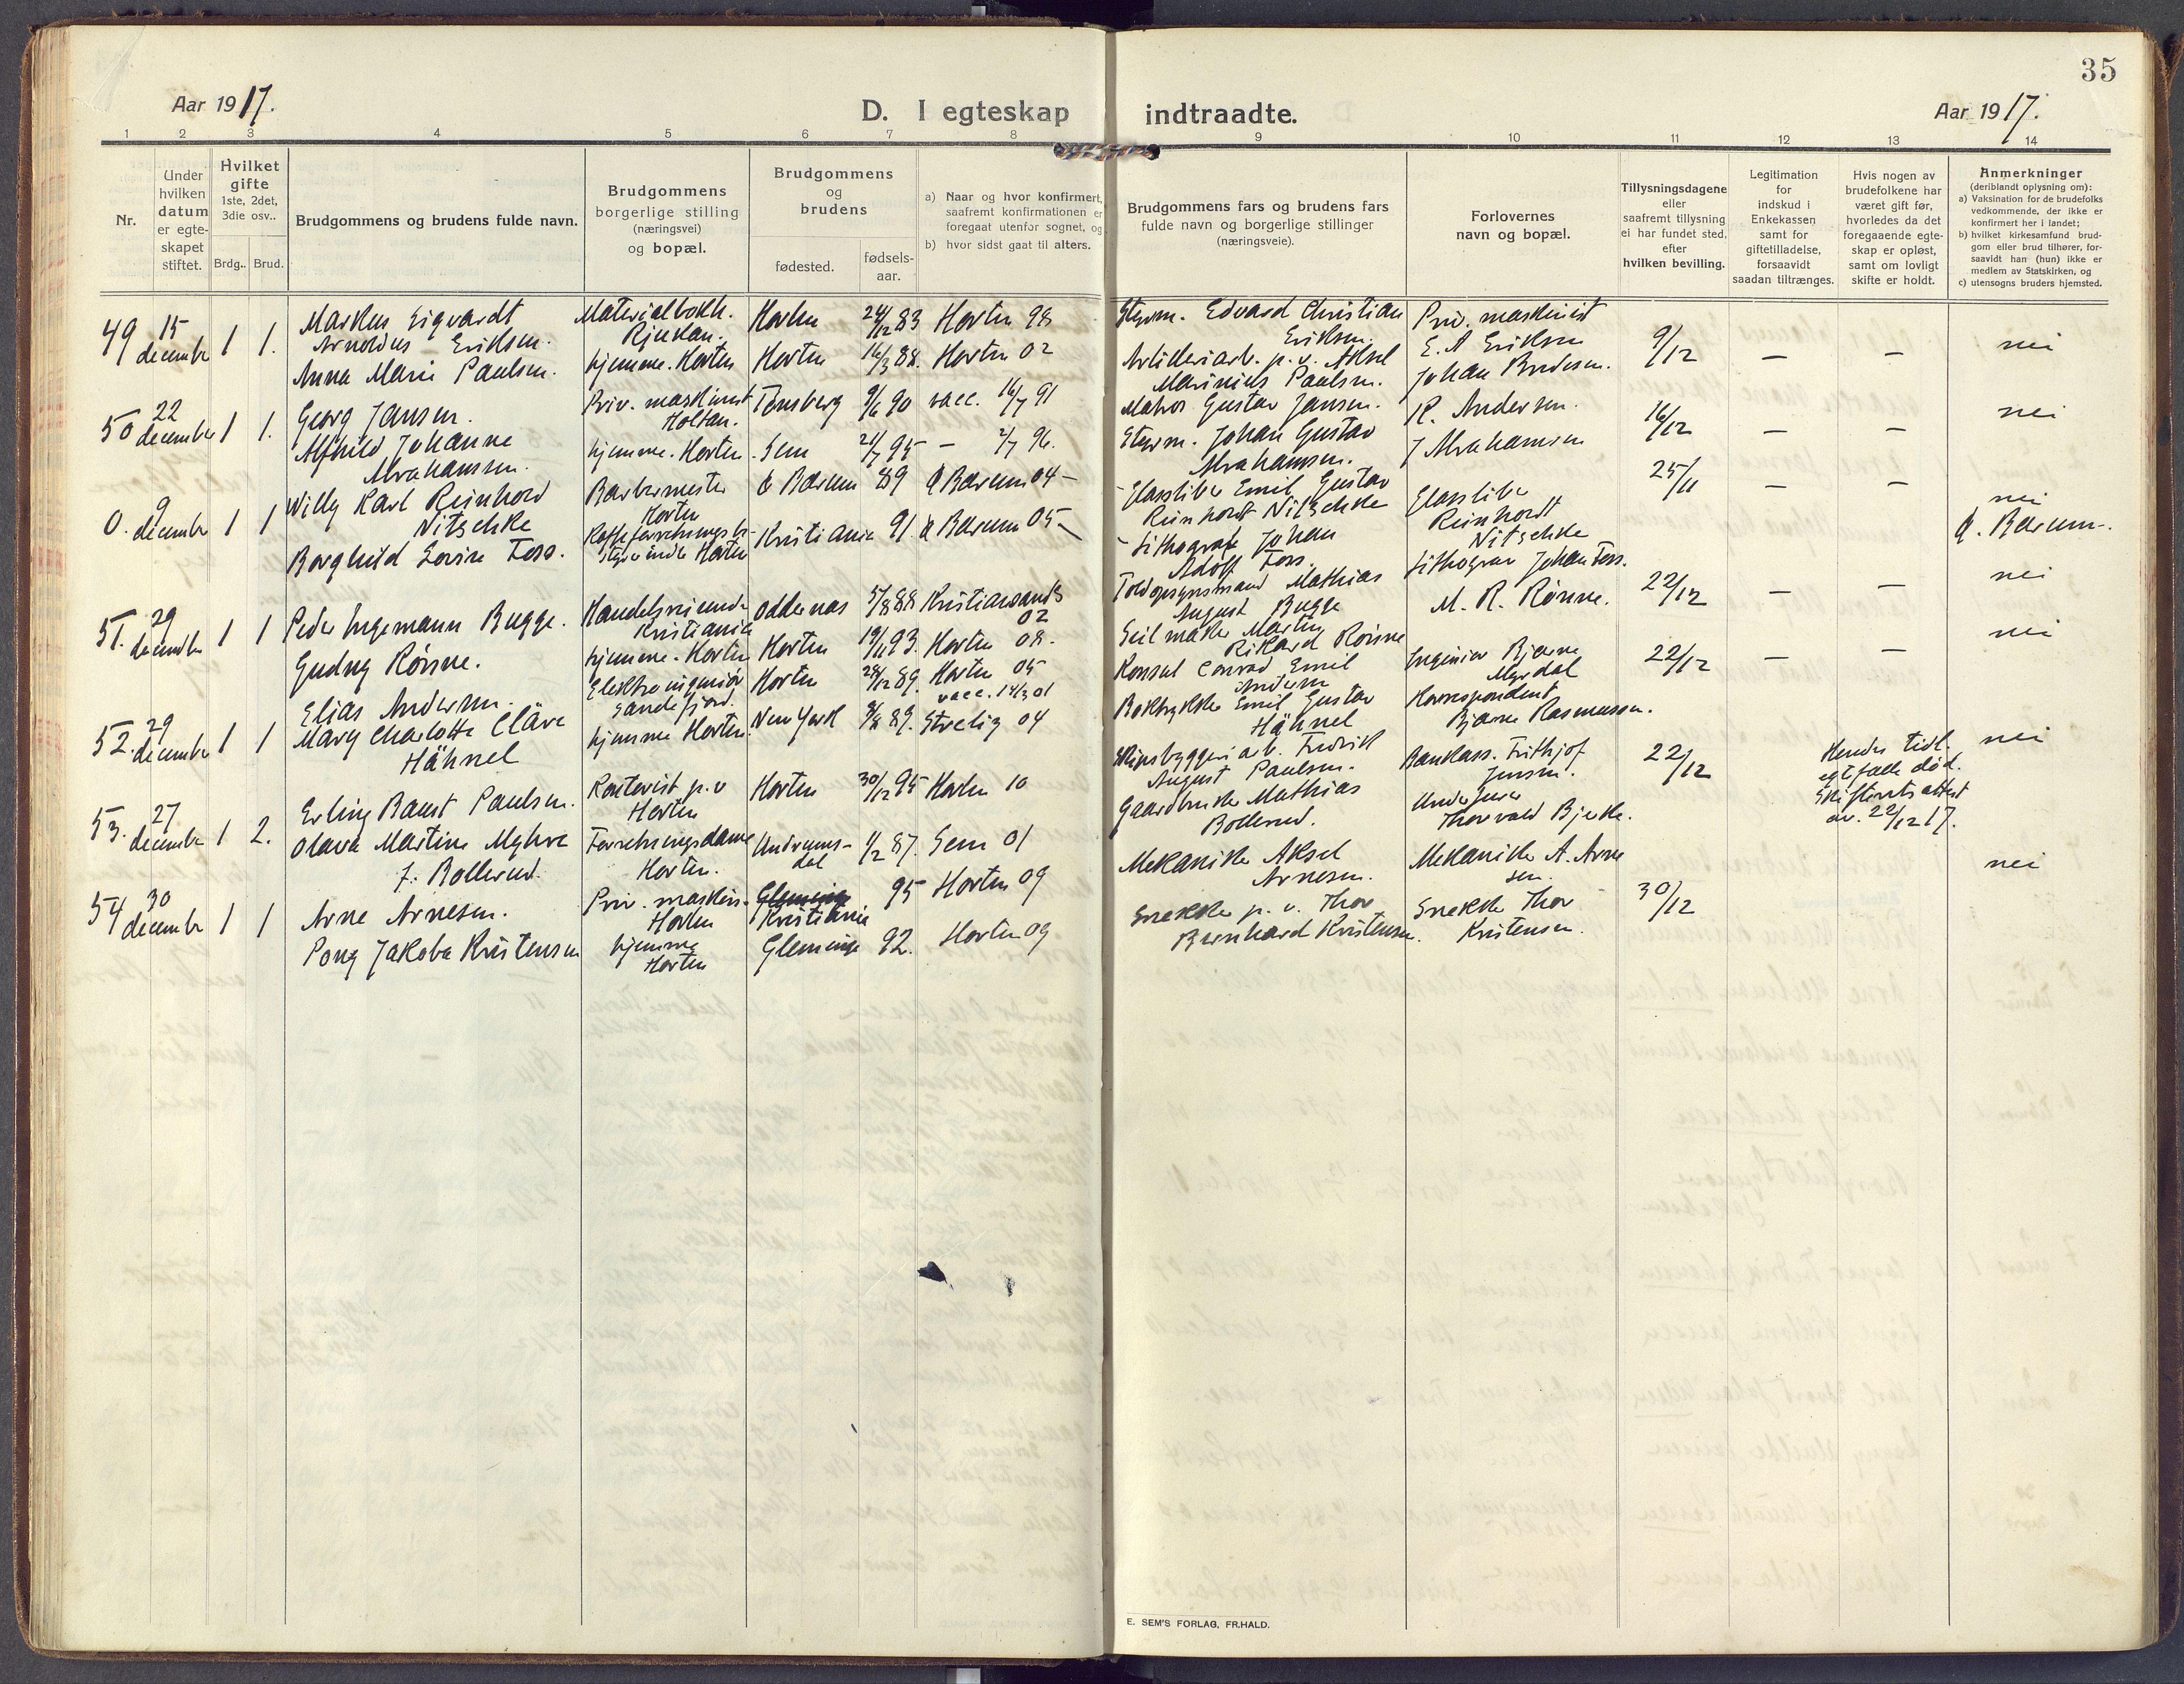 35
Aar 1917.
D. I egteskap indtraadte.
Aar 1917.
1 2 3 4 5 6 7 8 9 10 11 12 13 14
Nr.
Under
hvilken
datum
er egte-
skapet
stiftet.
Hvilket
gifte
1ste, 2det,
3die osv..
Brdg.. Brud.
Brudgommens og brudens fulde navn.
Brudgommens
borgerlige stilling
(næringsvei)
og bopæl.
Brudgommens
og
brudens
fødested.
fødsels-
aar.
a) Naar og hvor konfirmert,
saafremt konfirmationen er
foregaat utenfor sognet, og
b) hvor sidst gaat til alters.
Brudgommens fars og brudens fars
fulde navn og borgerlige stillinger
(næringsveie).
Forlovernes
navn og bopæl.
Tillysningsdagene
eller
saafremt tillysning
ei har fundet sted,
efter
hvilken bevilling.
Legitimation
for
indskud i
Enkekassen
samt for
giftetilladelse,
forsaavidt
saadan tiltrænges.
Hvis nogen av
brudefolkene har
været gift før,
hvorledes da det
foregaaende egte-
skap er opløst,
samt om lovligt
skifte er holdt.
Anmerkninger
(deriblandt oplysning om):
a) Vaksination for de brudefolks
vedkommende, der ikke er
konfirmert her i landet;
b) hvilket kirkesamfund brud-
gom eller brud tilhører, for-
saavidt han (hun) ikke er
medlem av Statskirken, og
c) utensogns bruders hjemsted.
49 15 december 1 1.
Markus Sigvardt
Arnoldus Eriksen.
Materialbokh.
Rjukan.
Horten 24/12 83 Horten 98
Styrm. Edvard Christian
Eriksen.
Priv. maskinist
E. A Eriksen
9/12 — — nei
Anna Marie Paulsen.
hjemme. Horten
Horten 16/3 88. Horten 02
Artilleriarb. p.v. Aksel
Marinius Paulsen.
Johan
50 22 december 1 1.
Georg Jansen.
Priv. maskinist
Holtan.
Tønsberg 9/6 90 vacc. 16/7 91
Matros Gustav Jansen.
R. Andersen.
16/12 — — nei
Alfhild Johanne
Abrahamsen.
hjemme. Horten
Sem 21/7 95 — 2/7 96.
Styrm. Johan Gustav
Abrahamsen.
J Abrahamsen
0. 9 december 1 1
Willy Karl Reinhord
Nitschke
Barbermester
Horten
Ø Bærum 89 Ø Bærum 04 —
Glassliber Emil Gustav
Reinhordt Nitschke
Glassliber
Reinhordt
Nitschke
25/11 — — nei
Ø. Bærum.
Borghild Lovise Foss.
Kaffeforretningsbe-
styrerinde Horten
Kristiania 91. Ø Bærum 05
Lithograf Johan
Adolf Foss.
Lithograv Johan Foss.
51. 29 december 1 1
Peder Ingemann Bugge.
Handelsreisende
Kristiania
Oddernes 5/8 88 Kristiansands
02
Toldopsynsmand Mathias
August Bugge
M. R. Rönne.
22/12 — — nei
Gudny Rönne.
hjemme. Horten
Horten 19/11 93. Horten 08.
Seilmaker Martin
Rikard Rönne
52. 29 december 1 1
Elias Andersen.
Elektroingeniør
Sandefjord.
Horten 28/12 89. Horten 05
vacc. 14/3 01
Konsul Conrad Emil
Andersen
Ingeniør Bjarne
Myrdal
22/12 — — nei
Mary Charlotte Cläre
Hähnel
hjemme Horten
New York 3/8 89. Strelig 04
Boktrykker Emil Gustav
Hähnel
Korrespondent
Bjarne Rasmussen.
53. 27 december 1 2.
Erling Baust Paulsen.
Kontorist p.v
Horten
Horten 30/12 95 Horten 10
Skipsbyggeriarb. Fredrik
August Paulsen.
Bankass. Frithjof
Jensen.
22/12
Hendes tidl.
egtefælle død.
Skifterets attest
av. 22/12 17.
nei
Olava Martine Myhre
f. Bollerud.
Forretningsdame
Horten.
Undrums-
dal 1/2 87. Sem 01
Gaardbruker Mathias
Bollerud.
Thorvald Bjerke.
54 30 december 1 1
Arne Arnesen.
Priv. maskin.
Horten
Glemminge
Kristiania 95 Horten 09
Mekaniker Aksel
Arnesen.
Mekaniker A. Arne
sen.
30/12 nei
Pony Jakoba Kristensen
hjemme
Horten
Gleminge 92. Horten 09
Snekker p. v. Thor
Bernhard Kristensen.
Snekker Thor
Kristensen.
E. SEM'S FORLAG, FR.HALD.